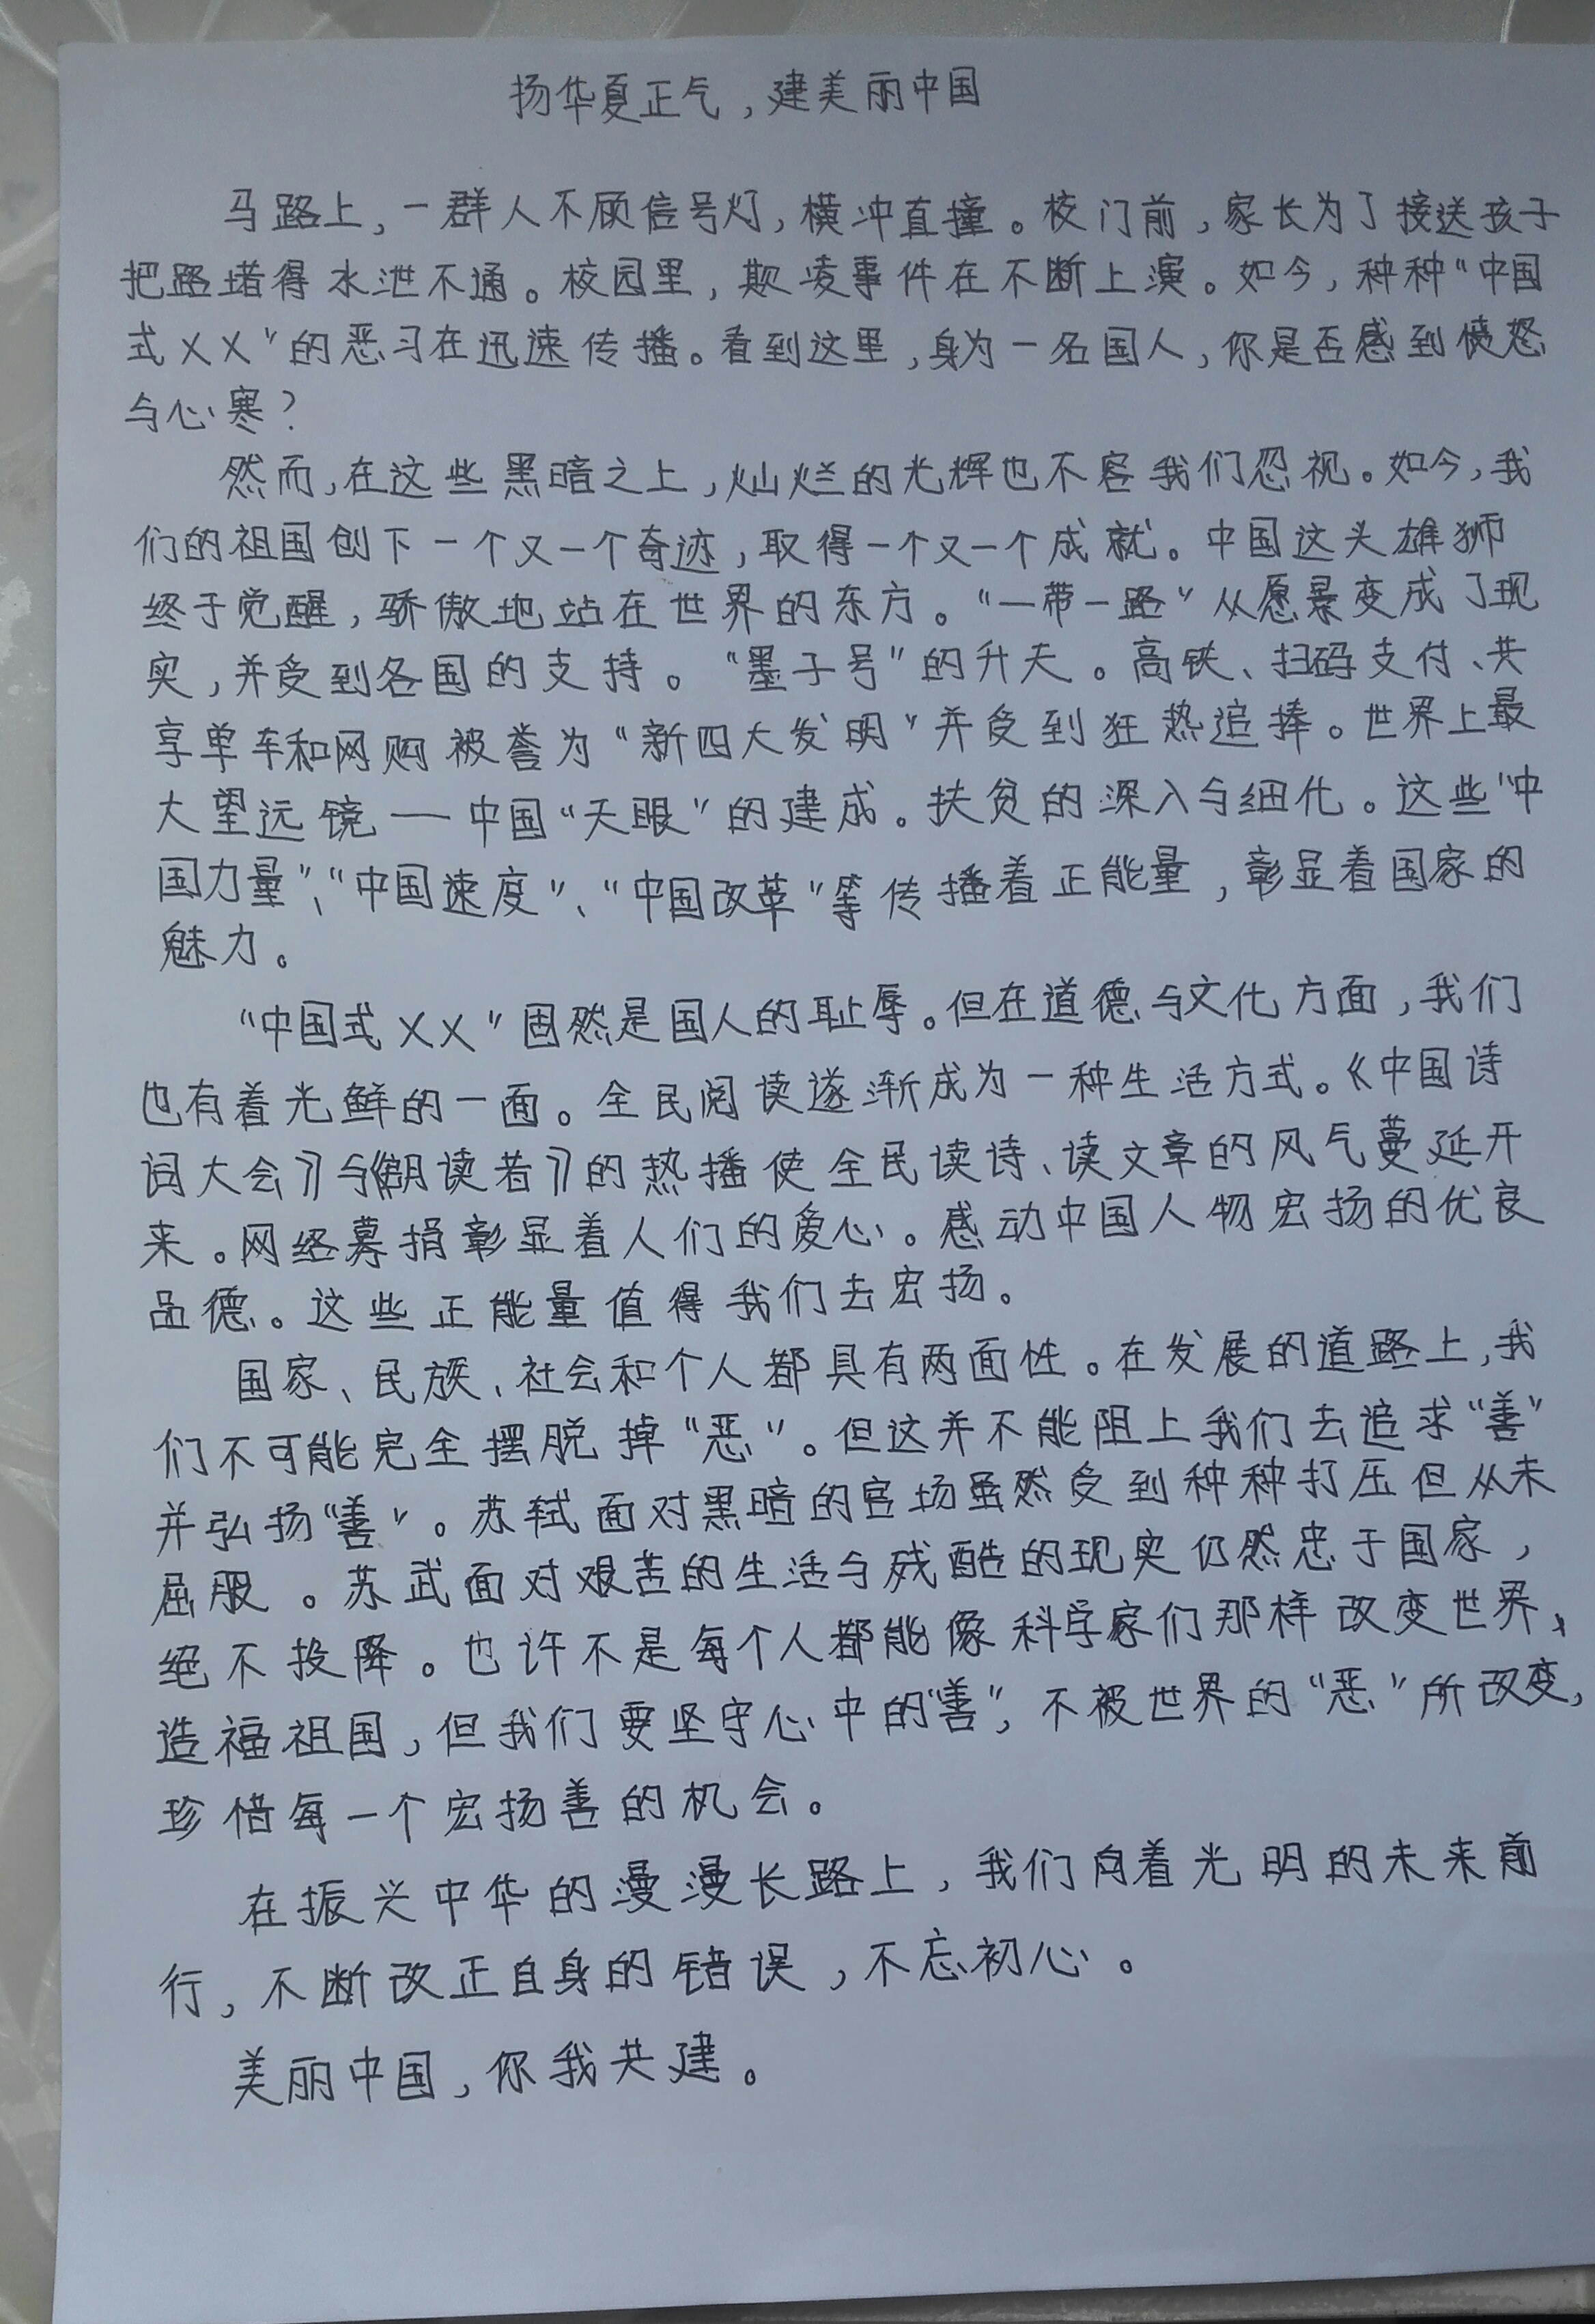 扬华夏正气，建美丽中国
马路上，一群人不顾信号灯，横冲直撞。校门前，家长为了接送孩子
把路堵得水泄不通。校园里，欺凌事件在不断上演。如今，种种“中国
式XX”的恶习在迅速传播。看到这里，身为一名国人，你是否感到愤怒
与心寒？
然而，在这些黑暗之上，灿烂的光辉也不容我们忽视。如今，我
们的祖国创下一个又一个奇迹，取得一个又一个成就。中国这头雄狮
终于觉醒，骄傲地站在世界的东方。“一带一路”从愿景变成了现
实，并受到各国的支持。“墨子号”的升天。高铁、扫码支付、共
享单车和网购被誉为“新四大发明”并受到狂热追捧。世界上最
大望远镜——中国“天眼”的建成。扶贫的深入与细化。这些“中
国力量”、“中国速度”、“中国改革”等传播着正能量，彰显着国家的
魅力。
“中国式XX”固然是国人的耻辱。但在道德与文化方面，我们
也有着光鲜的一面。全民阅读逐渐成为一种生活方式。《中国诗
词大会》与《朗读者》的热播使全民读诗、读文章的风气蔓延开
来。网络募捐彰显着人们的爱心。感动中国人物宏扬的优良
品德。这些正能量值得我们去宏扬。
国家、民族、社会和个人都具有两面性。在发展的道路上，我
们不可能完全摆脱掉“恶”。但这并不能阻止我们去追求“善”
并弘扬“善”。苏轼面对黑暗的官场虽然受到种种打压但从未
屈服。苏武面对艰苦的生活与残酷的现实仍然忠于国家，
绝不投降。也许不是每个人都能像科学家们那样改变世界、
造福祖国，但我们要坚守心中的“善”，不被世界的“恶”所改变，
珍惜每一个宏扬善的机会。
在振兴中华的漫漫长路上，我们向着光明的未来前
行，不断改正自身的错误，不忘初心。
美丽中国，你我共建。